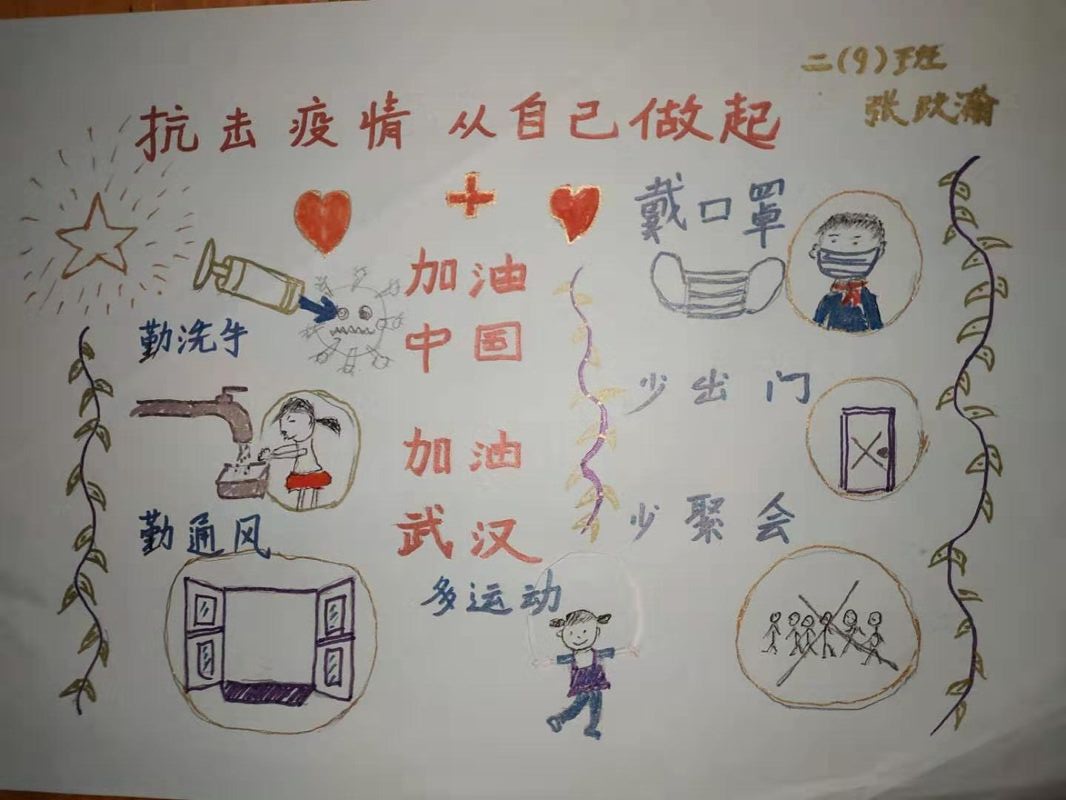 二(9)班
张政瀚
抗击疫情 从自己做起
戴口罩
加油
中国
勤洗手
少出门
加油
武汉
勤通风
少聚会
多运动